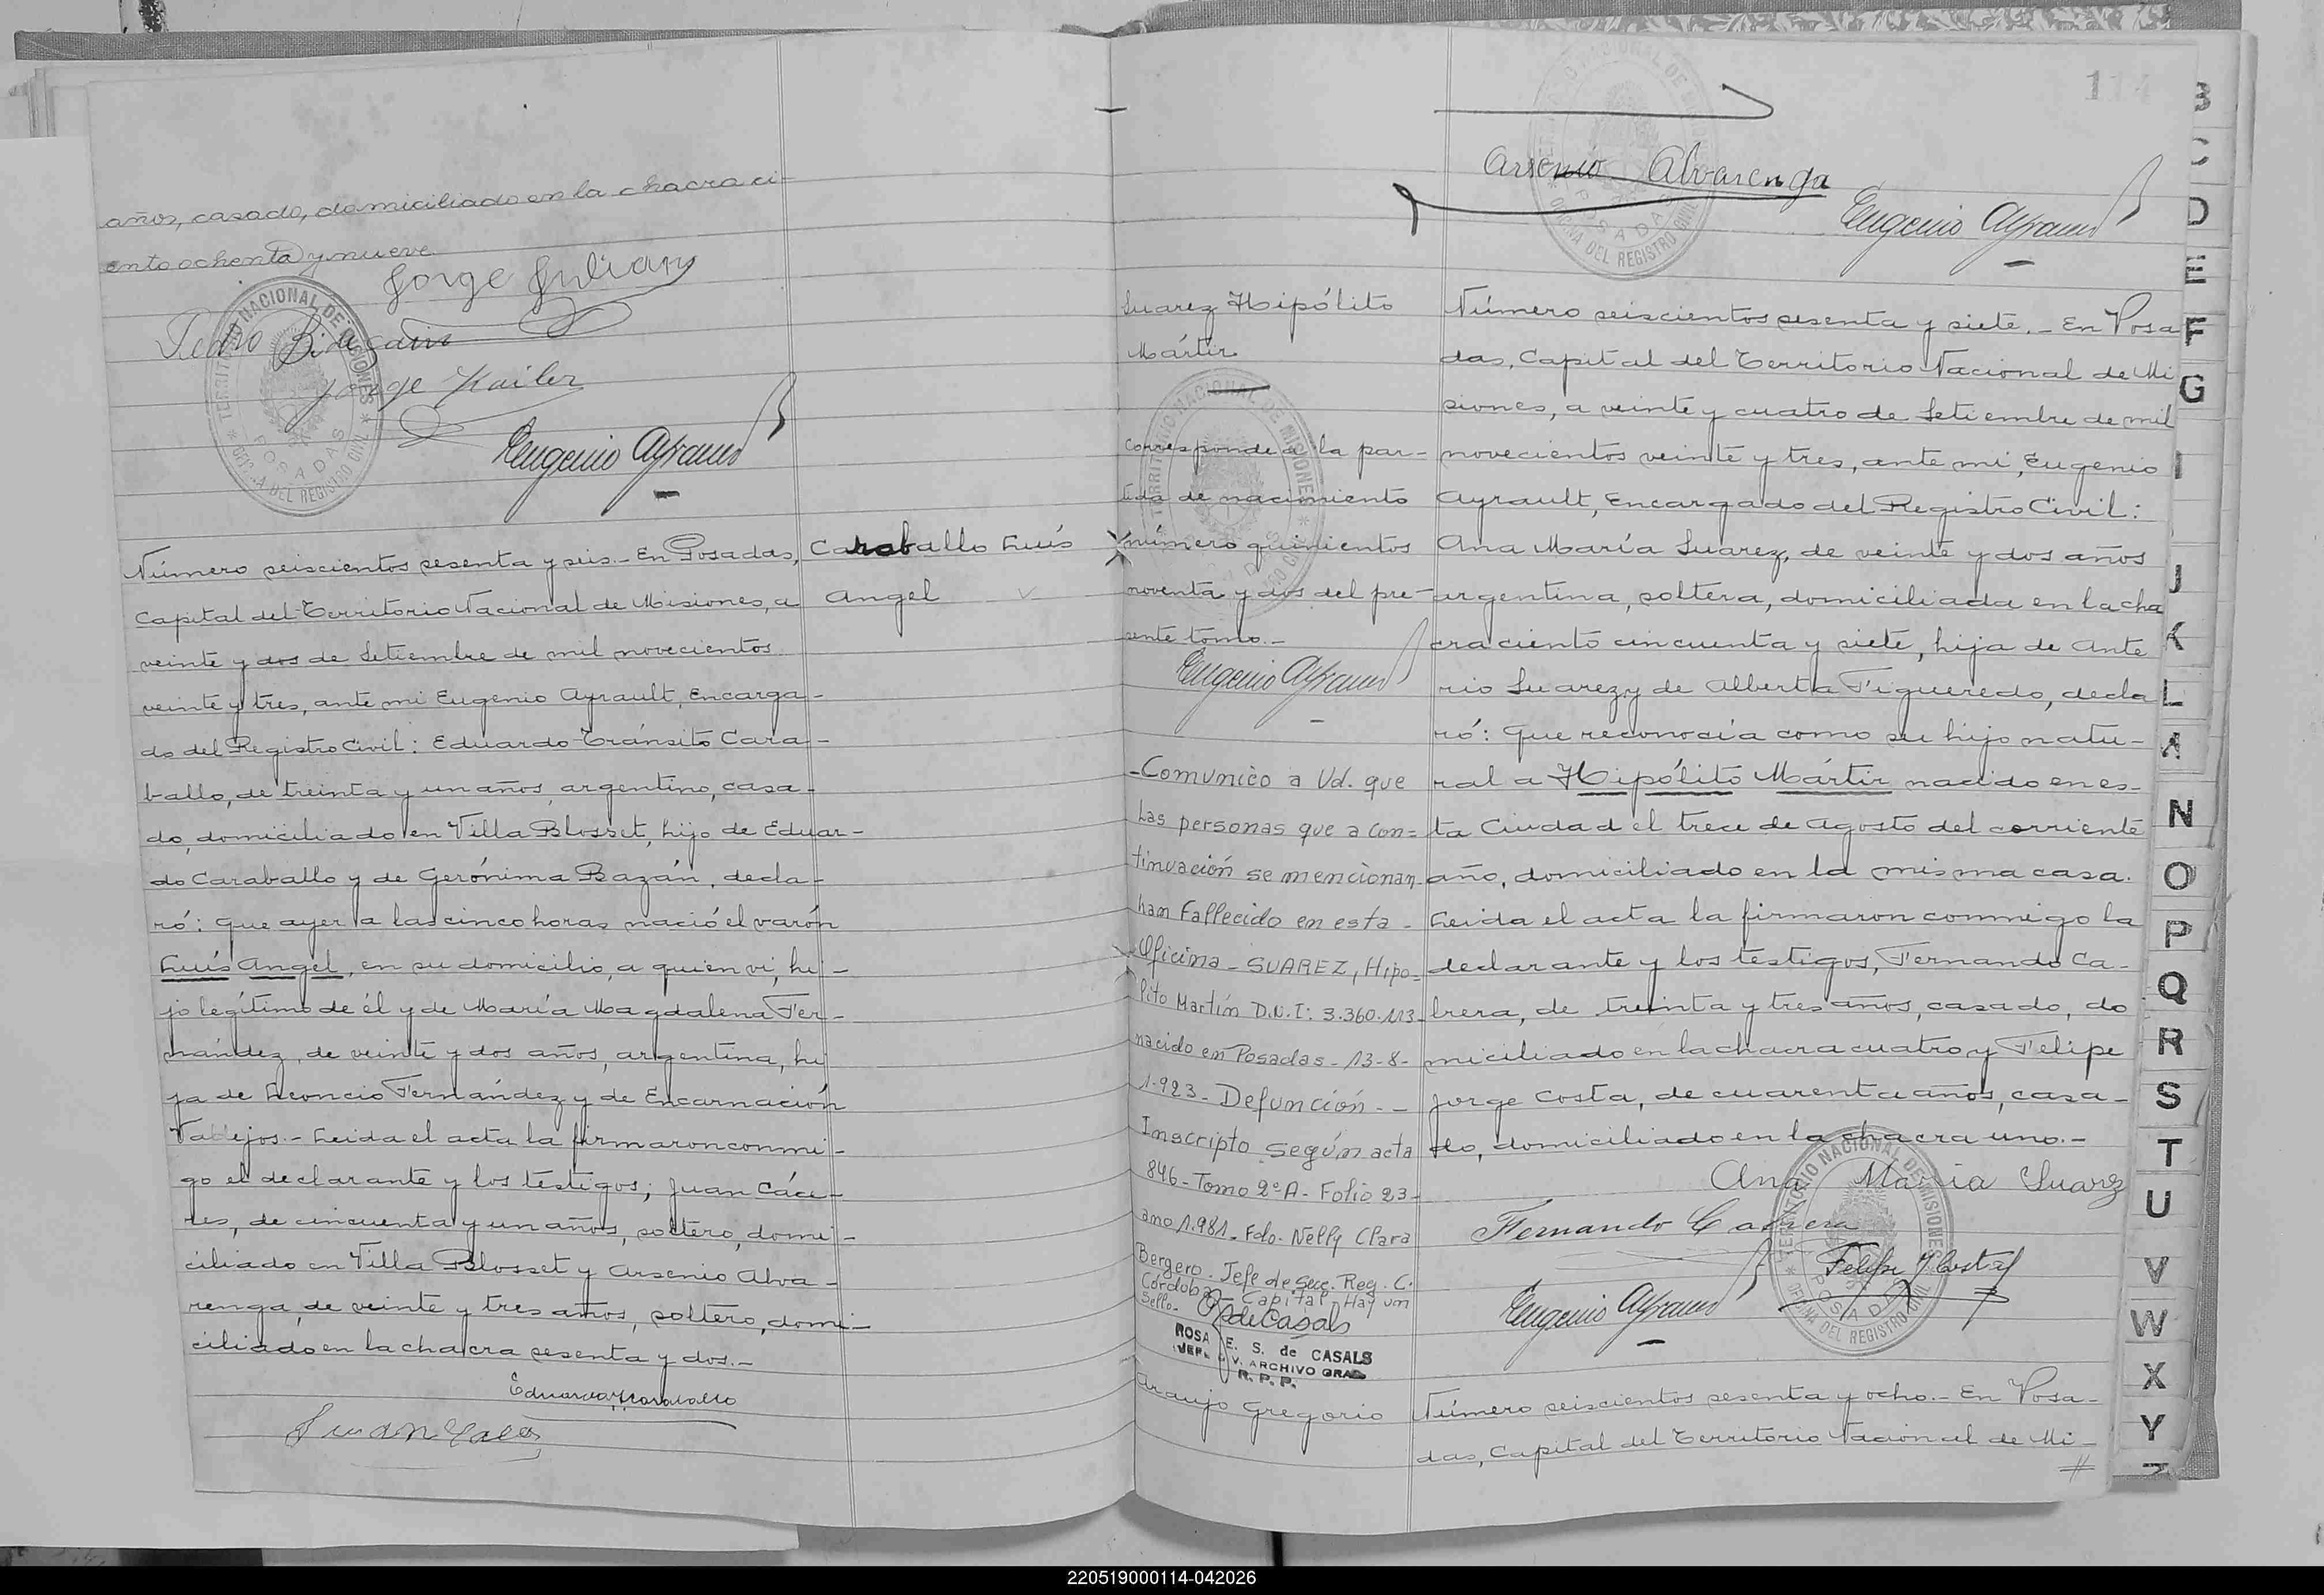 años, casado, domiciliado en la chacra ci-
ento ochenta y nueve.
Jorge Julian
Pedro Bidegain
Jorge Kailer
Eugenio Ayrault
TERRITORIO NACIONAL DE MISIONES
POSADAS
OFICINA DEL REGISTRO CIVIL
Caraballo Luis
Angel
Número seiscientos sesenta y seis.- En Posadas,
Capital del Territorio Nacional de Misiones, a
veinte y dos de Setiembre de mil novecientos
veinte y tres, ante mi Eugenio Ayrault, Encarga-
do del Registro Civil: Eduardo Tránsito Cara-
ballo, de treinta y un años, argentino, casa-
do, domiciliado en Villa Blosset, hijo de Eduar-
do Caraballo y de Gerónima Bazán, decla-
ró: Que ayer a las cinco horas nació el varón
Luis Angel, en su domicilio, a quien vi, hi-
jo legítimo de él y de María Magdalena Fer-
nández, de veinte y dos años, argentina, hi
ja de Leoncio Fernández y de Encarnación
Vallejos.- Leida el acta la firmaron conmi-
go el declarante y los testigos; Juan Cáce-
res, de cincuenta y un años, soltero, domi-
ciliado en Villa Blosset y Arsenio Alva-
renga, de veinte y tres años, soltero, domi-
ciliado en la chacra sesenta y dos.-
Eduardo T Caraballo
Juan Caceres
114
Arsenio Alvarenga
Eugenio Ayrault
POSADAS
OFICINA DEL REGISTRO CIVIL
Suarez Hipólito
Mártir
Corresponde a la par-
tida de nacimiento
número quinientos
noventa y dos del pre-
sente tomo.-
Eugenio Ayrault
TERRITORIO NACIONAL DE MISIONES
-Comunico a Ud. que
Las personas que a con=
tinuación se mencionan
han Fallecido en esta -
Oficina - SUAREZ, Hipo-
lito Martín D.N.I: 3.360.113
nacido en Posadas - 13-8-
1.923 - Defunción. -
Inscripto según acta
846 - Tomo 2º A - Folio 23-
año 1.981 - Fdo. Nelly Clara
Bergero. Jefe de Secc. Reg. C.
Córdoba - Capital - Hay un
Sello.
R de Casals
ROSA E. S. de CASALS
JEFE DIV. ARCHIVO GRAL
R. P. P.
Número seiscientos sesenta y siete.- En Posa
das, Capital del Territorio Nacional de Mi
siones, a veinte y cuatro de Setiembre de mil
novecientos veinte y tres, ante mi, Eugenio
Ayrault, Encargado del Registro Civil:
Ana María Suarez, de veinte y dos años
argentina, soltera, domiciliada en la cha
cra ciento cincuenta y siete, hija de Ante
rio Suarez y de Alberta Figueredo, decla
ró: Que reconocía como su hijo natu-
ral a Hipólito Mártir nacido en es-
ta Ciudad el trece de Agosto del corriente
año, domiciliado en la misma casa.
Leida el acta la firmaron conmigo la
declarante y los testigos, Fernando Ca-
brera, de treinta y tres años, casado, do
miciliado en la chacra cuatro y Felipe
Jorge Costa, de cuarenta años, casa-
do, domiciliado en la chacra uno.-
Ana Maria Suarez
Fernando Cabrera
Felipe J Costa
Eugenio Ayrault
TERRITORIO NACIONAL DE MISIONES
POSADAS
OFICINA DEL REGISTRO CIVIL
Araujo Gregorio
Número seiscientos sesenta y ocho.- En Posa-
das, Capital del Territorio Nacional de Mi-
B
C
D
E
F
G
I
J
K
L
N
O
P
Q
R
S
T
U
V
W
X
Y
Z
220519000114-042026